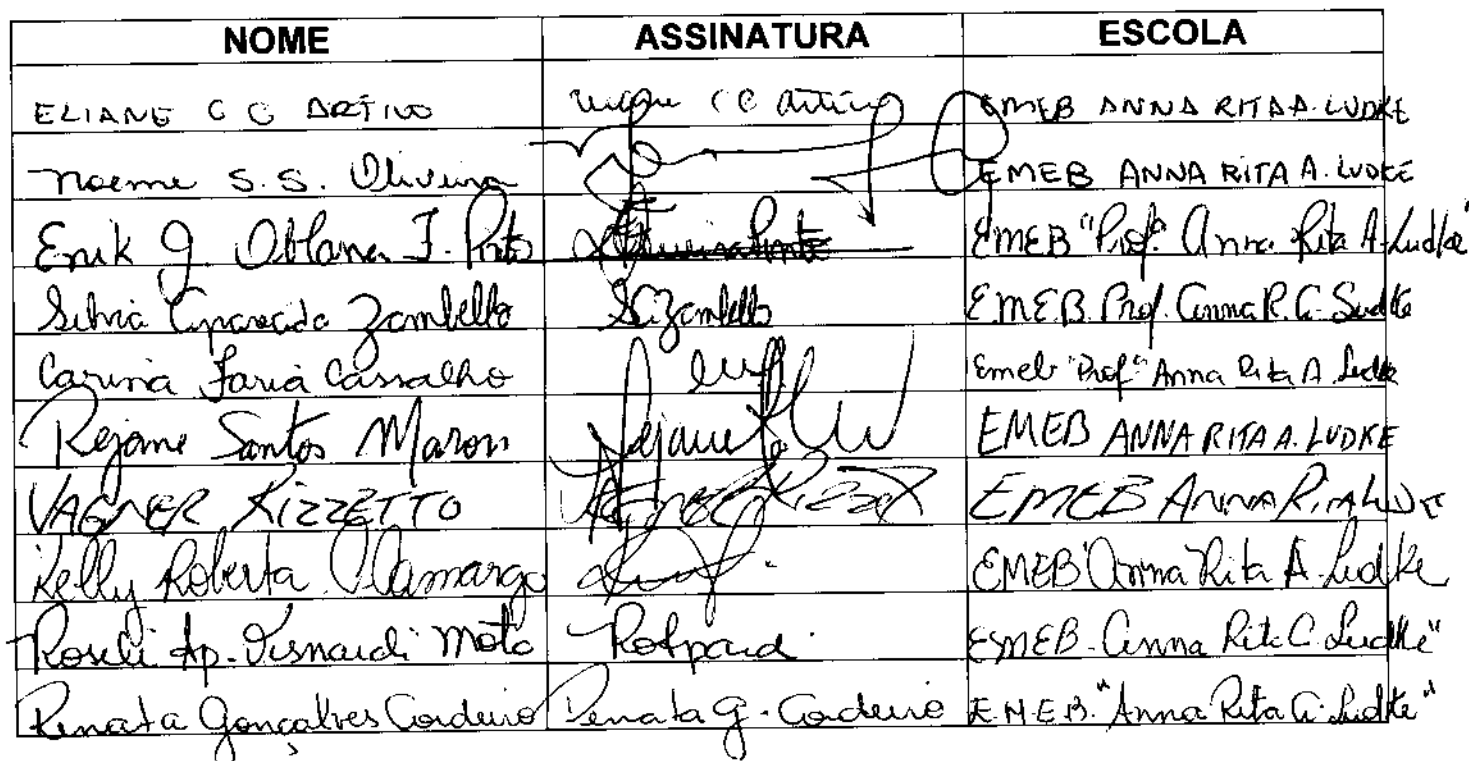 NOME ASSINATURA ESCOLA
ELIANE C C ARTIVO CC EMEB ANNA RITA A. LUDKE
Noeme S. S. Oliveira EMEB ANNA RITA A. LUDKE
Erik J. F. Pinto EMEB "Profª. Anna Rita A. Ludke"
Silvia Aparecida Zambello SAZambello EMEB Prof. Anna R. A. Ludke
Carina Faria Carvalho Emeb "Profª Anna Rita A. Ludke
Rejane Santos Maron Rejane EMEB ANNA RITA A. LUDKE
VAGNER RIZZETTO VAGNER EMEB ANNA RITA LUDKE
Kelly Roberta Camargo EMEB "Anna Rita A. Ludke
Roseli Ap. Visnardi Moto EMEB - Anna Rita A. Ludke"
Renata Gonçalves Cordeiro Renata G. Cordeiro E.M.E.B. "Anna Rita A. Ludke"